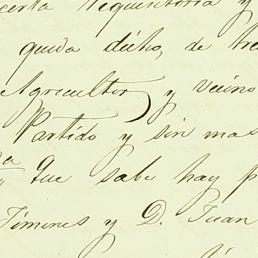 cierta requisitoria y
queda dicho, de tre
Agricultor y vecino
Partido y sin mas
Que sabe hay p
Jimenes y D. Juan